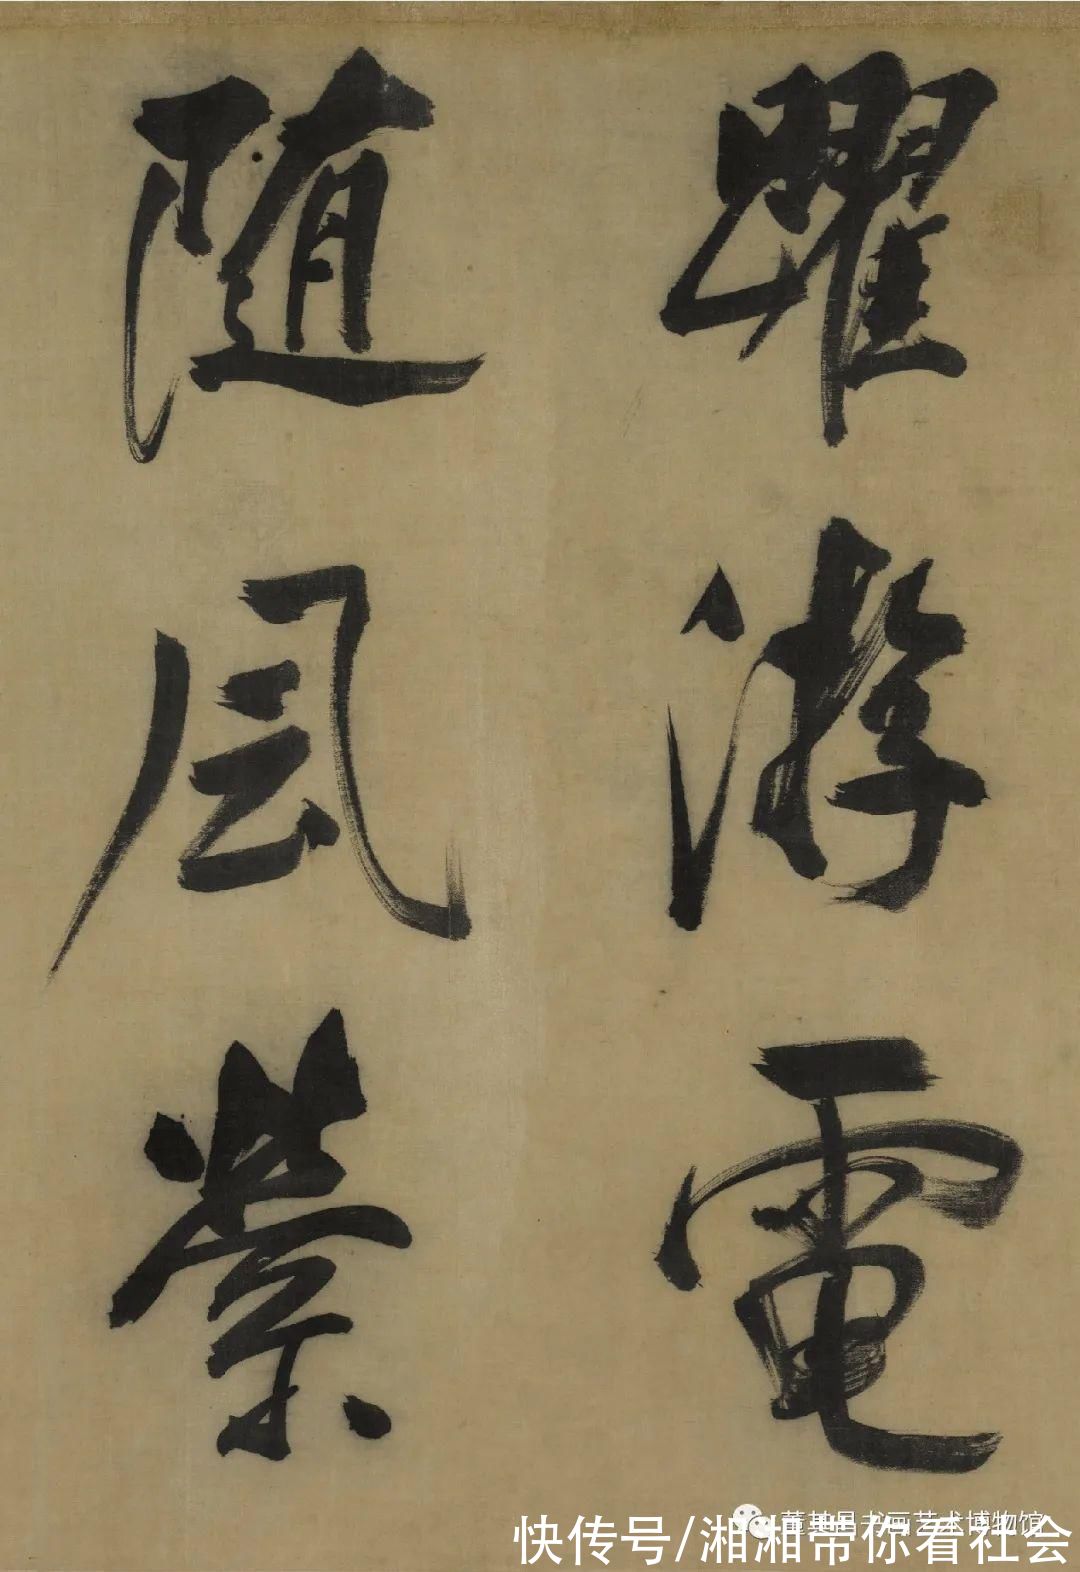 躍游電
随風縈
董其昌书画艺术博物馆
快传号/湘湘带你看社会